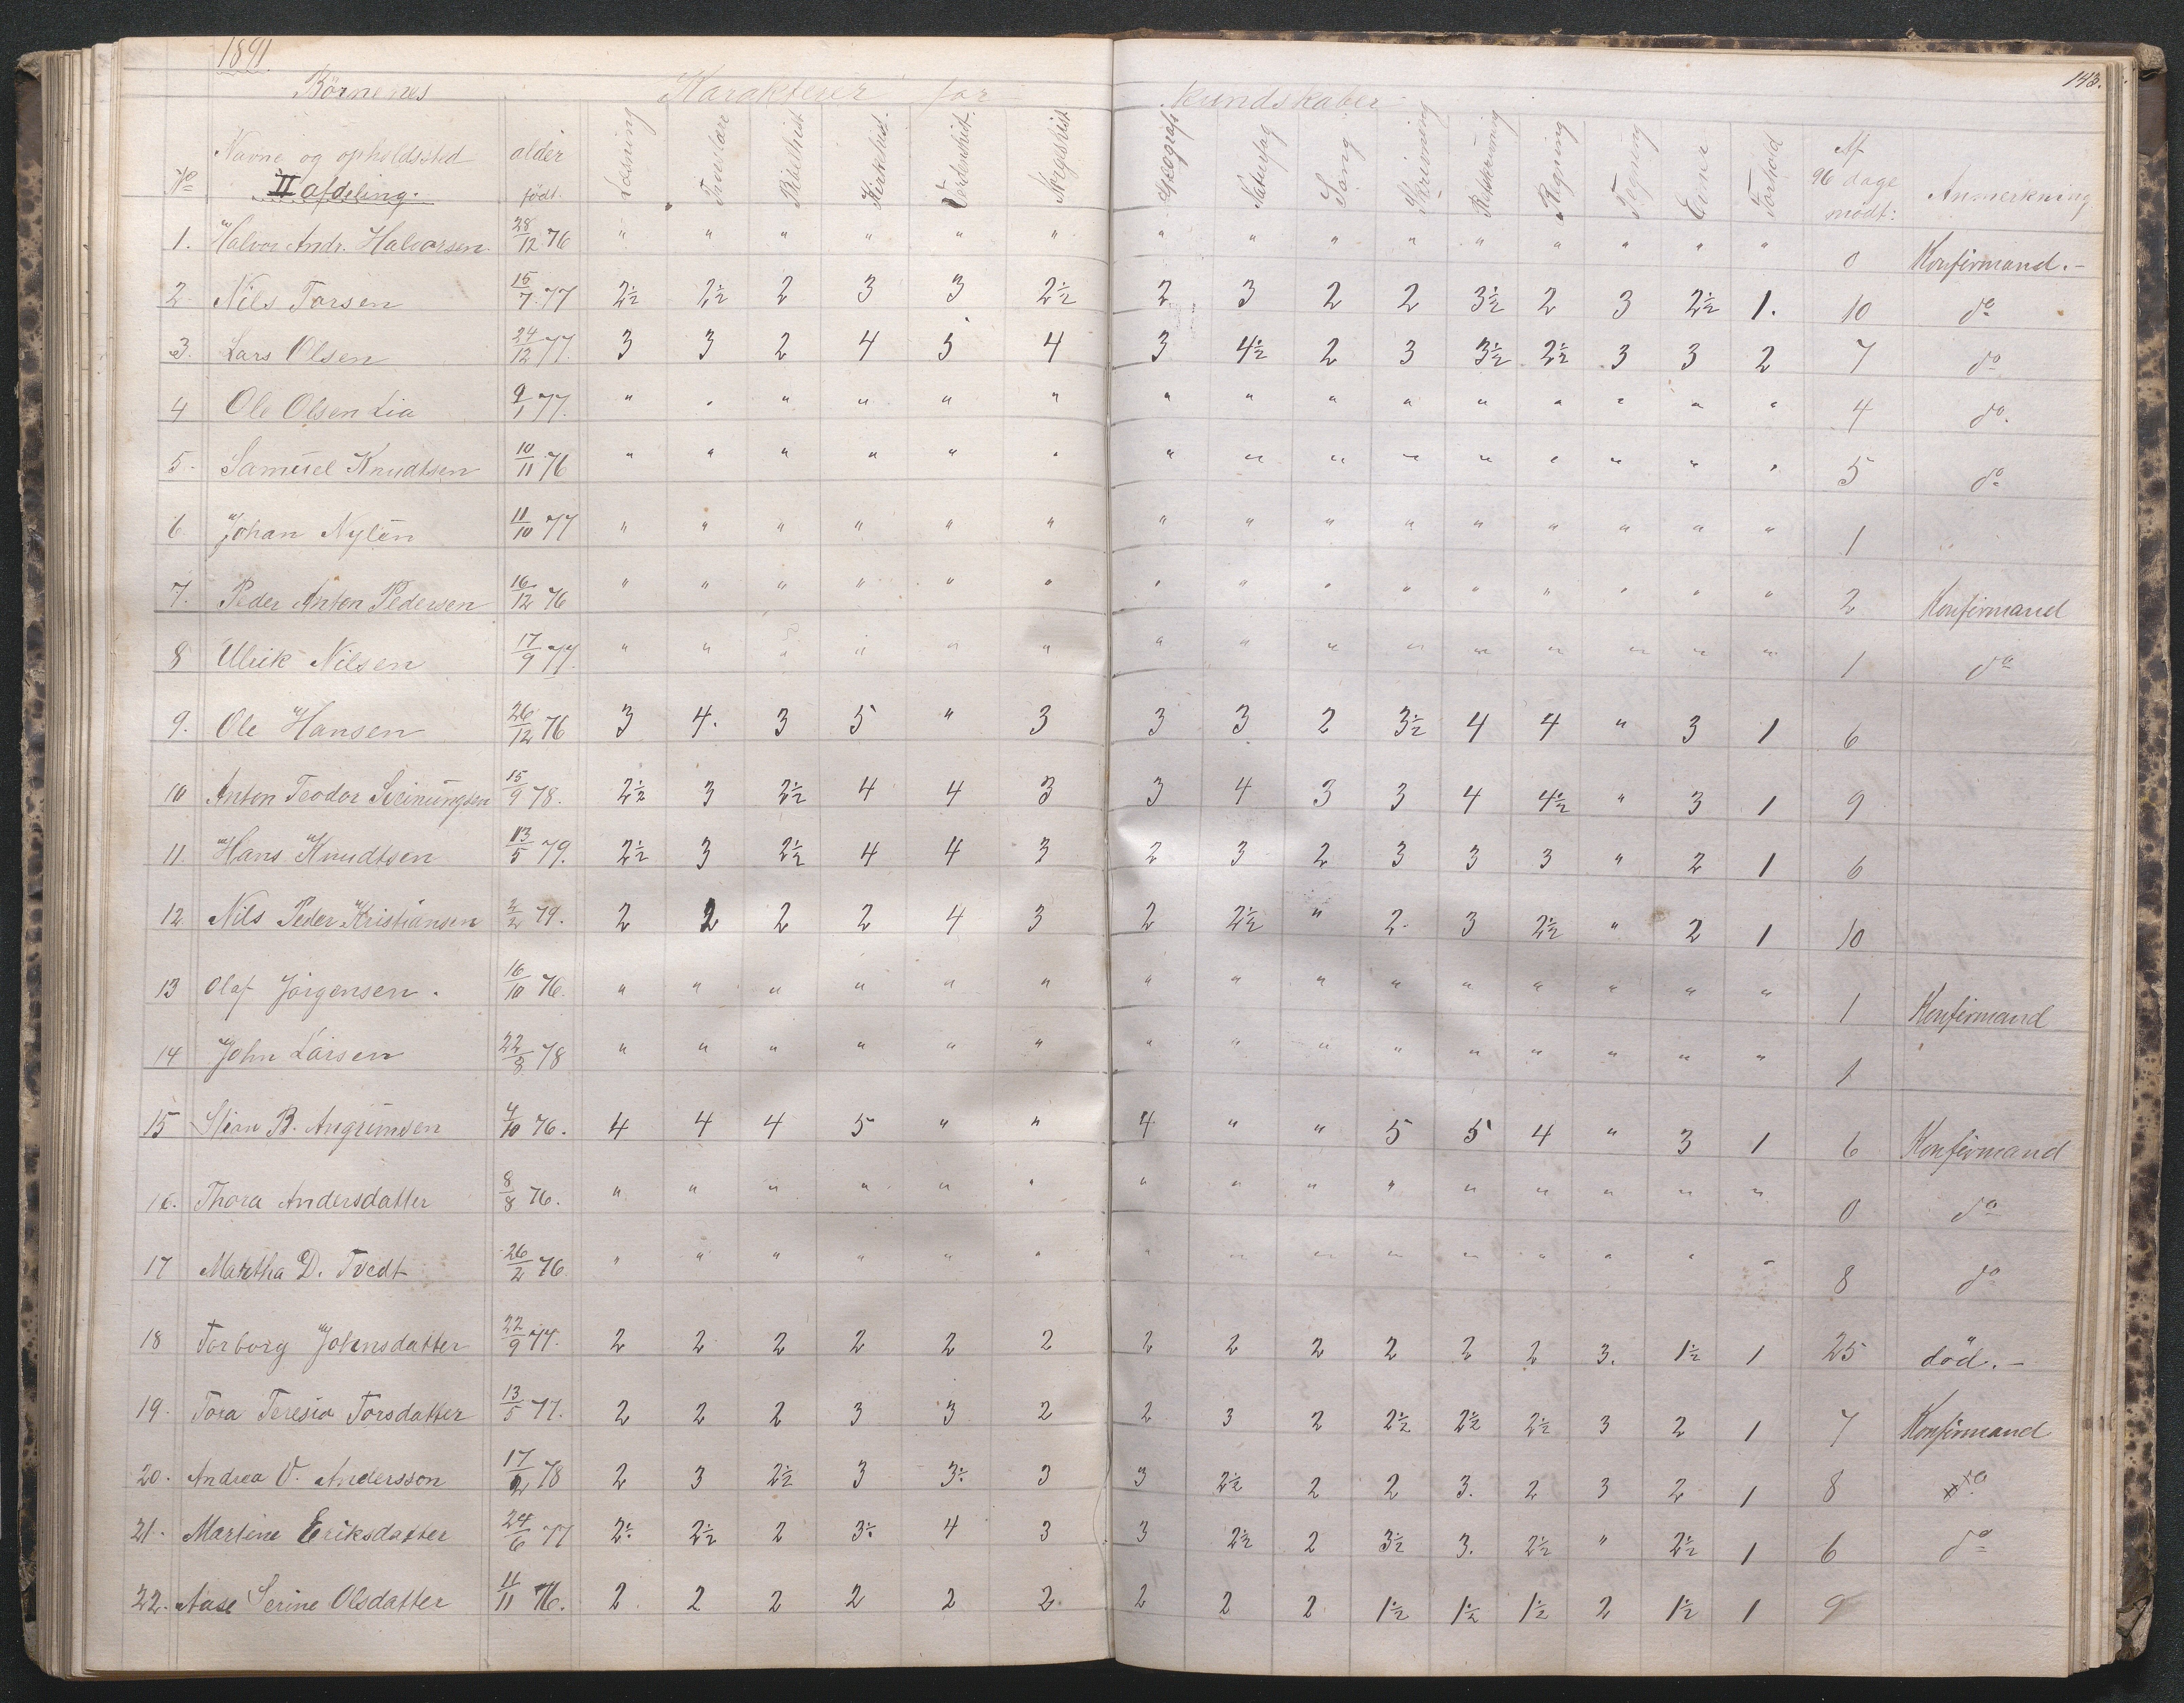 1891.
143.
Börnenes Karakterer for kundskaber
No Navne og opholdssted II afdeling. alder födt. Læsning Troeslære Bibelhist. Kirkehist. Verdenshist. Norgeshist. Geograf. Naturfag Sang Skrivning Retskrivning Regning Tegning Evner Forhold Af 96 dage mödt: Anmerkning
1. Halvor Andr. Halvorsen 28/12 76 " " " " " " " " " " " " " " " 0 Konfirmand.-
2 Nils Torsen 15/7 77 2½ 2½ 2 3 3 2½ 2 3 2 2 3½ 2 3 2½ 1. 10 do
3. Lars Olsen 24/12 77. 3 3 2 4 5 4 3 4½ 2 3 3½ 2½ 3 3 2 7 do
4 Ole Olsen Lia 9/1 77. " " " " " " " " " " " " " " " 4 do.
5. Samuel Knudtsen 10/11 76 " " " " " " " " " " " " " " " 5 do
6 Johan Nylén 11/10 77 " " " " " " " " " " " " " " " 1
7. Peder Anton Pedersen 16/12 76 " " " " " " " " " " " " " " " 2 Konfirmand
8 Ulrik Nilsen 17/9 77. " " " " " " " " " " " " " " " 1 do
9. Ole Hansen 26/12 76 3 4. 3 5 " 3 3 3 2 3½ 4 4 " 3 1 6
10 Anton Teodor Sveinungsen 15/9 78. 2½ 3 2½ 4 4 3 3 4 3 3 4 4½ " 3 1 9
11. Hans Knudtsen 13/5 79. 2½ 3 2½ 4 4 3 2 3 2 3 3 3 " 2 1 6
12 Nils Peder Kristiansen 2/2 79. 2 2 2 2 4 3 2 2½ " 2. 3 2½ " 2 1 10
13 Olaf Jörgensen. 16/10 76. " " " " " " " " " " " " " " " 1 Konfirmand
14 John Larsen 22/8 78 " " " " " " " " " " " " " " " 1
15 Stian B. Angrimsen 4/10 76. 4 4 4 5 " " 4 " " 5 5 4 " 3 1 6 Konfirmand
16. Thora Andersdatter 8/8 76. " " " " " " " " " " " " " " " 0 do
17 Martha D. Tvedt 26/2 76 " " " " " " " " " " " " " " " 8 do
18 Torborg Johnsdatter 22/9 77. 2 2 2 2 2 2 2 2 2 2 2 2 3. 1½ 1 25 död.-
19. Tora Teresia Torsdatter 13/5 77. 2 2 2 3 3 2 2 3 2 2½ 2½ 2½ 3 2 1 7 Konfirmand
20. Andrea V. Andersson 17/2 78 2 3 2½ 3 3÷ 3 3 2½ 2 2 3. 2 3 2 1 8 do
21. Martine Eriksdatter 24/6 77 2÷ 2½ 2 3÷ 4 3 3 2½ 2 3½ 3. 2½ " 2½ 1 6 do
22. Aase Serine Olsdatter 11/11 76. 2 2 2 2 2 2 2 2 2 1½ 1½ 1½ 2 1½ 1 9